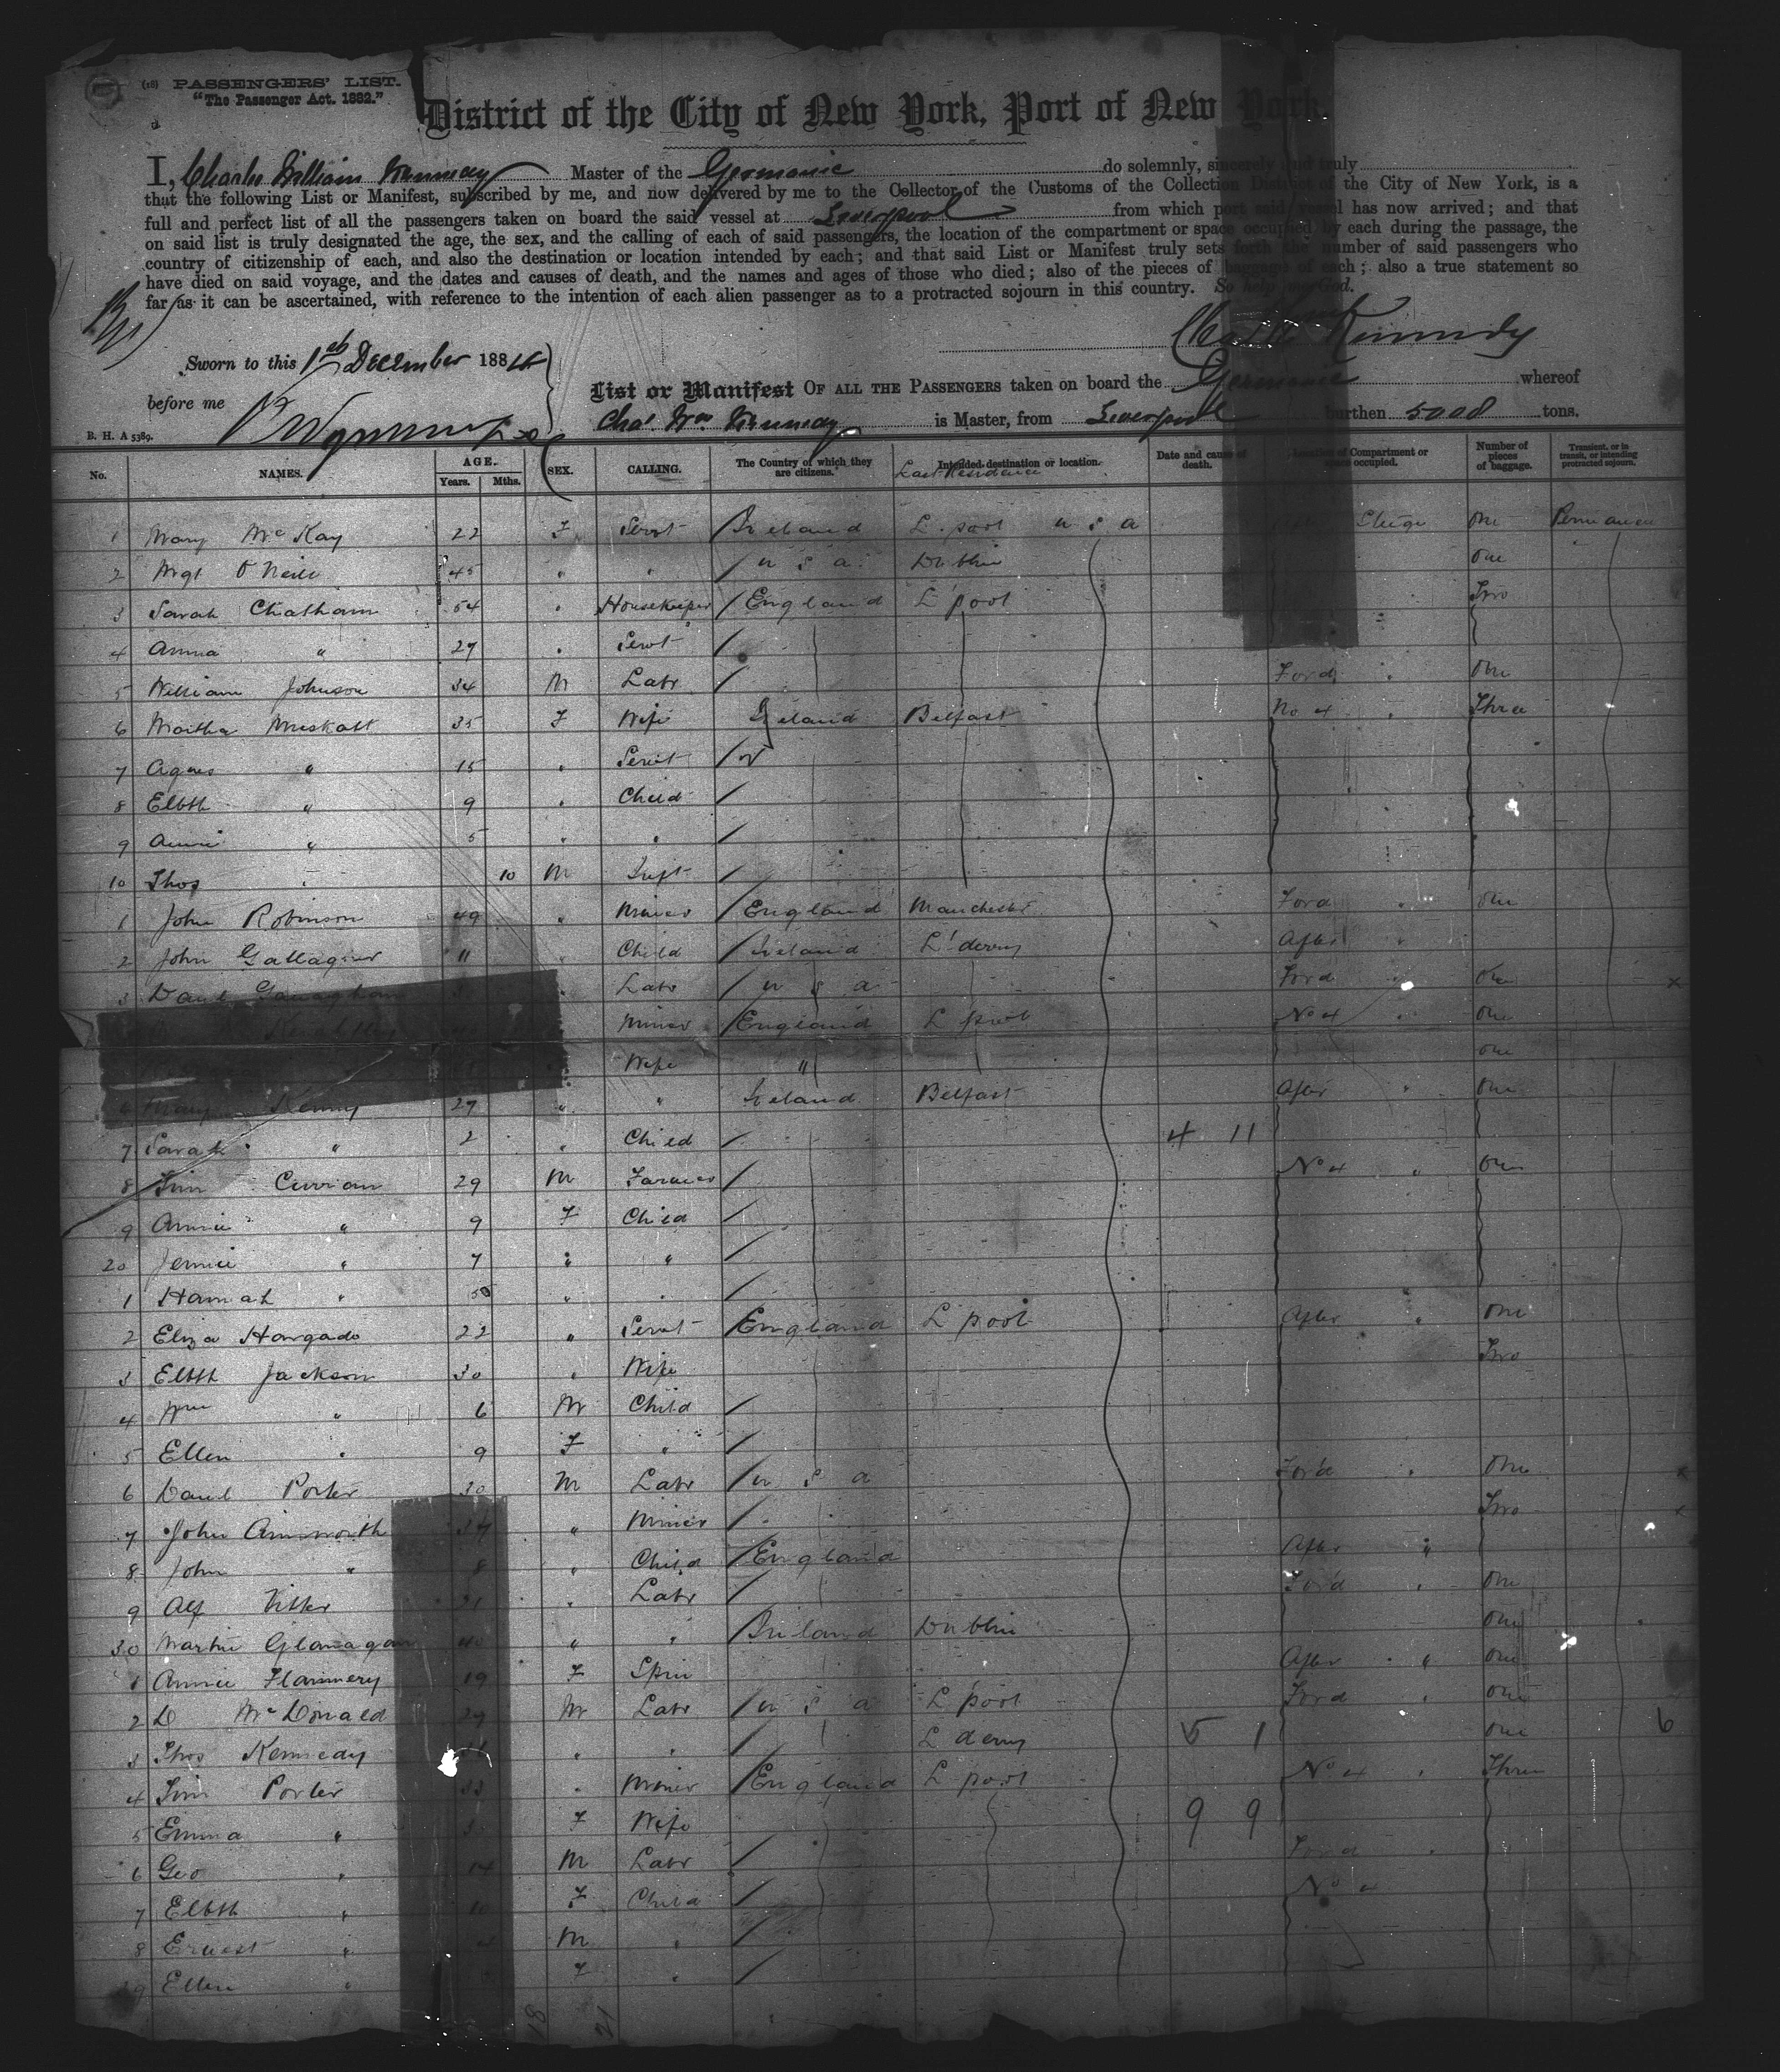 (18) PASSENGERS' LIST.
"The Passenger Act. 1882."
District of the City of New York, Port of New York.
I, Charles William Kennedy Master of the Germanic do solemnly, sincerely and truly
that the following List or Manifest, subscribed by me, and now delivered by me to the Collector of the Customs of the Collection District of the City of New York, is a
full and perfect list of all the passengers taken on board the said vessel at Liverpool from which port said vessel has now arrived; and that
on said list is truly designated the age, the sex, and the calling of each of said passengers, the location of the compartment or space occupied by each during the passage, the
country of citizenship of each, and also the destination or location intended by each; and that said List or Manifest truly sets forth the number of said passengers who
have died on said voyage, and the dates and causes of death, and the names and ages of those who died; also of the pieces of baggage of each; also a true statement so
far as it can be ascertained, with reference to the intention of each alien passenger as to a protracted sojourn in this country. So help me God.
Kennedy
Sworn to this 1st December 1884
before me
List or Manifest OF ALL THE PASSENGERS taken on board the Germanic whereof
Chas Wm Kennedy is Master, from Liverpool burthen 5008 tons.
B. H. A 5389.
No. NAMES. AGE. Years. Mths. SEX. CALLING. The Country of which they are citizens. Intended destination or location. Last Residence Date and cause of death. Location of Compartment or space occupied. Number of pieces of baggage. Transient, or in transit, or intending protracted sojourn.
1 Mary McKay 22 F Servt Ireland L'pool U S A Stege One
2 Mgt O'Neill 45 " " U S A Dublin One
3 Sarah Chatham 54 " Housekeeper England L'pool Two
4 Anna " 27 " Servt
5 William Johnson 34 M Labr Ford " One
6 Martha Muskatt 35 F Wife Ireland Belfast No 4 " Three
7 Agnes " 15 " Servt
8 Elbth " 9 " Child
9 Annie " 5 " "
10 Thos " 10 M Inft
1 John Robinson 49 " Miner England Manchester Ford " One
2 John Gallagher 11 " Child Ireland L'derry After "
3 Danl " Labr U S A Ford " One
Miner England L'pool No 4 " One
Wife " One
6 Mary Kenny 27 " " Ireland Belfast After " One
7 Sarah " 2 " Child 4 11
8 Jim Curran 29 M Farmer No 4 " One
9 Annie " 9 F Child
20 Jennie " 7 " "
1 Hannah " 5 " "
2 Eliza Hargado 22 " Servt England L'pool After " One
3 Elbth Jackson 30 " Wife Two
4 Wm " 6 M Child
5 Ellen " 9 F "
6 Danl Porter 30 M Labr U S A Ford " One
7 John Ainsworth 37 " Miner Two
8 John " 8 " Child England After "
9 Alf 21 " Labr Ford " One
30 Martin 40 " " Ireland Dublin One
1 Annie Flannery 19 F Spin After " One
2 D McDonald 29 M Labr U S A L'pool Ford " One
3 Thos Kennedy " " L'derry 5 1 One 6
4 Jim Porter 33 " Miner England L'pool No 4 " Three
5 Emma " F Wife 9 9
6 Geo " 14 M Labr Ford "
7 Elbth " 10 F Child No 4
8 Ernest " M "
9 Ellen " F "
18 21